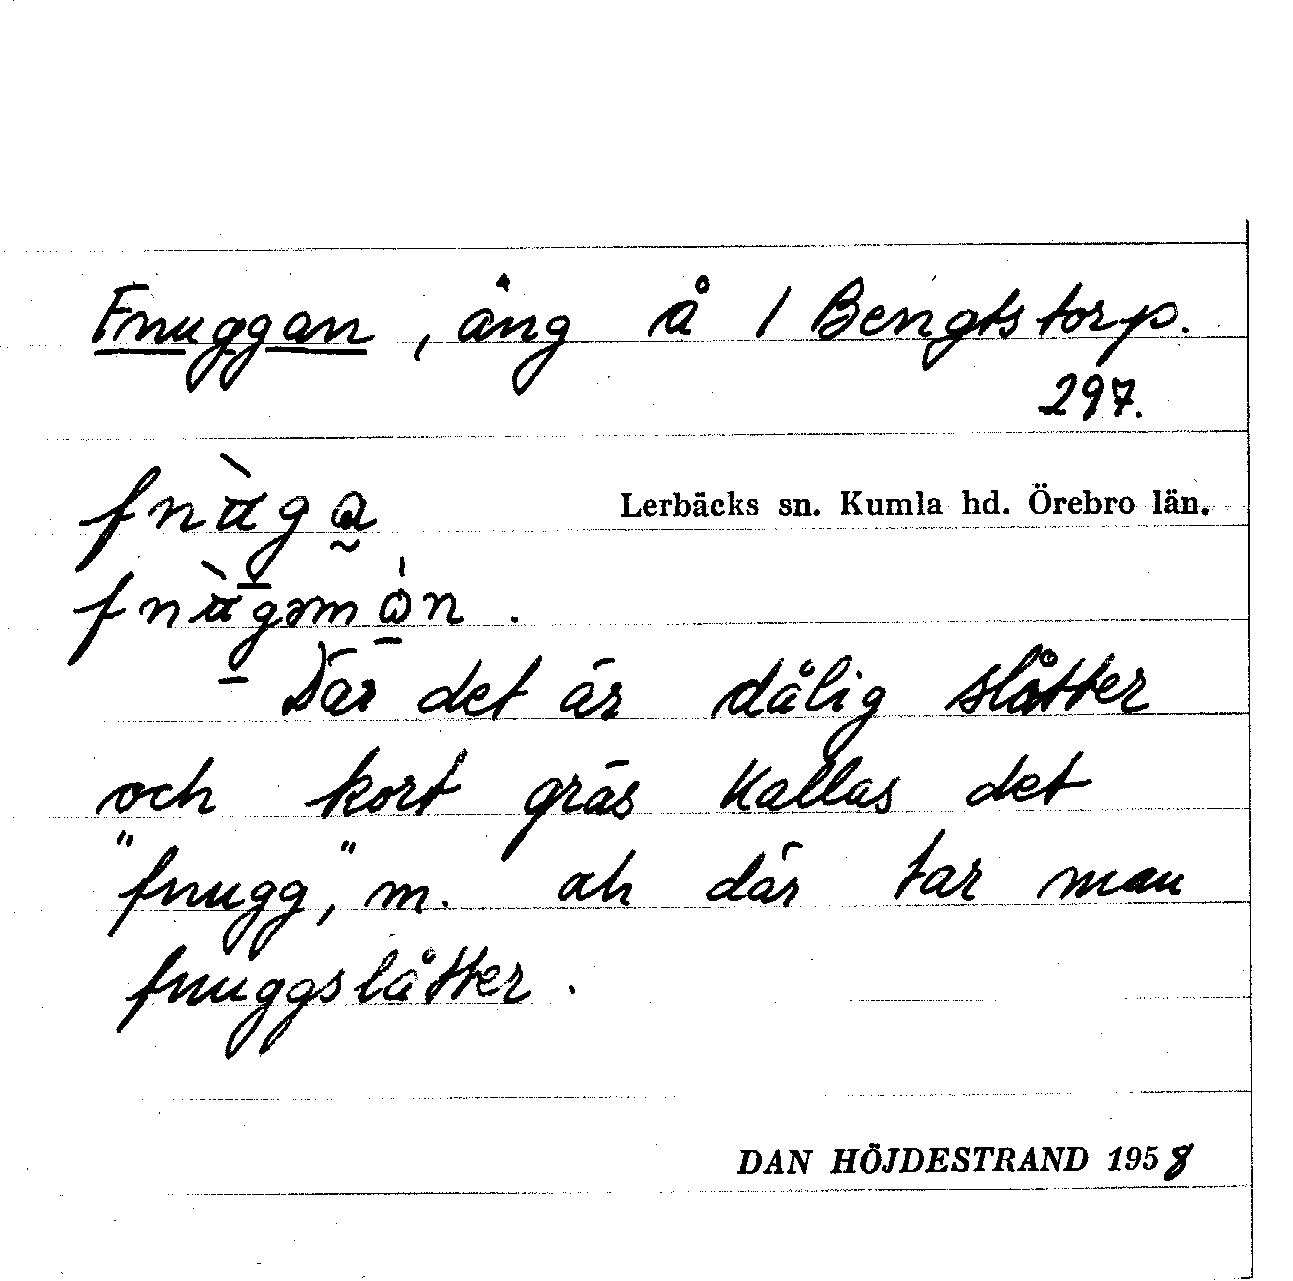 Fnuggan, äng å 1 Bengtstorp.
297.
Lerbäcks sn. Kumla hd. Örebro län.
Där det är dålig slåtter
och kort gräs kallas det
"fnugg," m. ah där tar man
fnuggslåtter.
DAN HÖJDESTRAND 1958